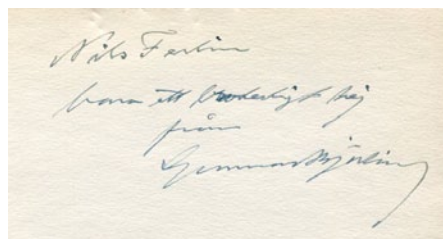 Nils Ferlin
bara ett broderligt hej
från
Gunnar Björling